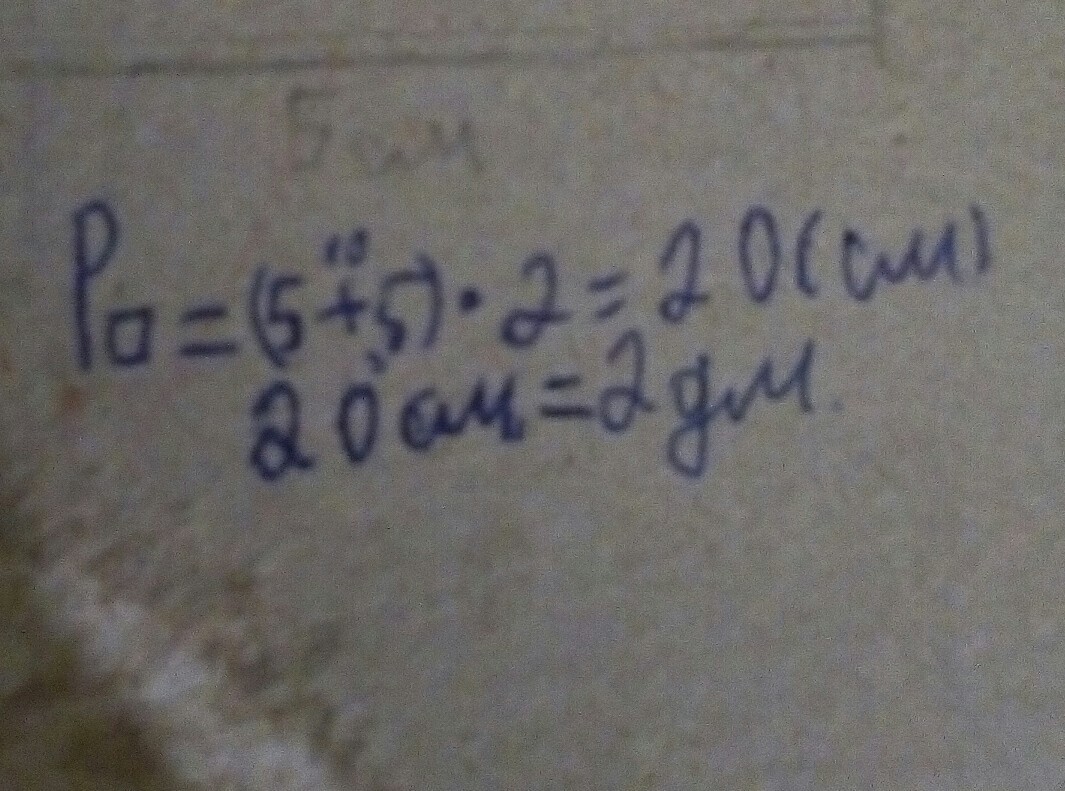 5 см
P□ = (5 + 5) · 2 = 20 (см)
10
20 см = 2 дм.